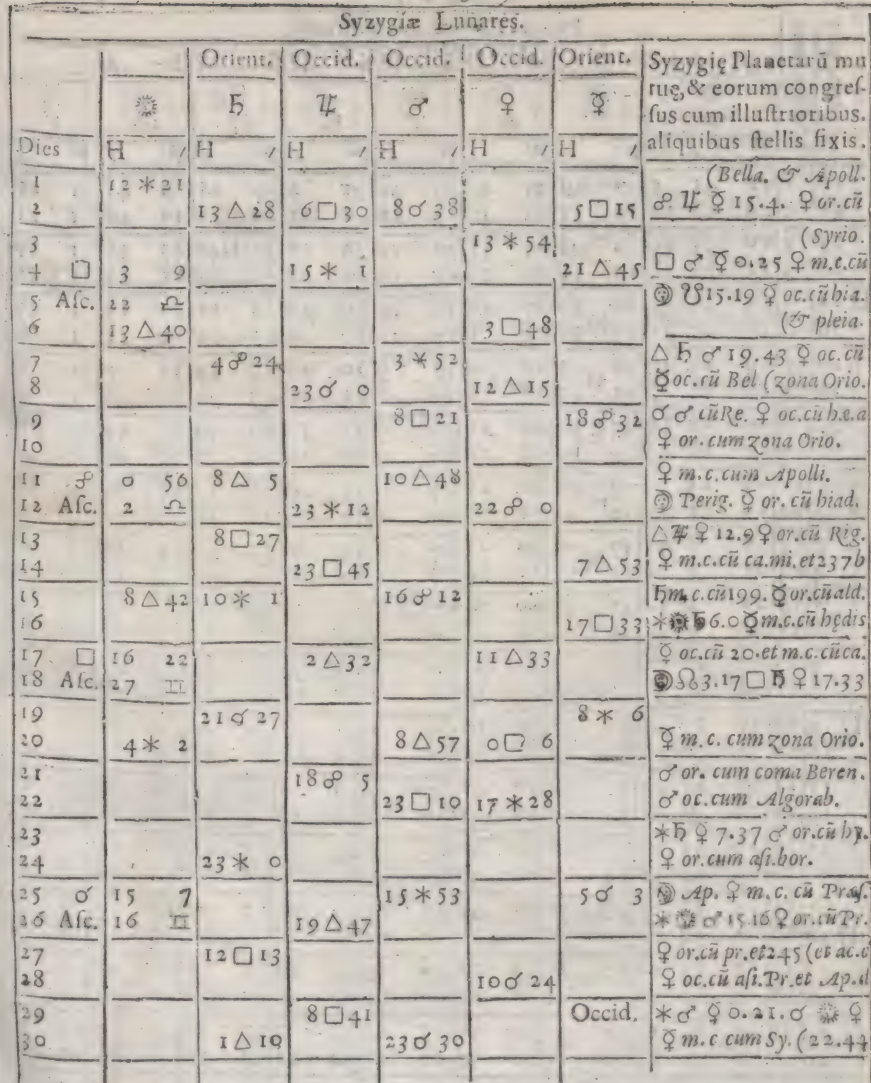 Syzygiæ Lunares.
Orient. Occid. Occid. Occid. Orient. Syzygię Planetarũ mu
☉ ♄ ♃ ♂ ♀ ☿ tuę, & eorum congreſ-
ſus cum illuſtrioribus.
Dies H ′ H ′ H ′ H ′ H ′ H ′ aliquibus ſtellis fixis.
1 12 ⚹ 21 (Bella. & Apoll.
2 13 △ 28 6 □ 30 8 ☌ 38 5 □ 15 ☍ ♃ ☿ 15.4. ♀ or.cũ
3 13 ⚹ 54 (Syrio.
4 □ 3 9 15 ⚹ 1 21 △ 45 □ ♂ ☿ 0.25 ♀ m.c.cũ
5 Aſc. 22 ♎ ☽ ☋ 15.19 ☿ oc.cũ hia.
6 13 △ 40 3 □ 48 (& pleia.
7 4 ☍ 24 3 ⚹ 52 △ ♄ ♂ 19.43 ☿ oc.cũ
8 23 ☌ 0 12 △ 15 ☿ oc.cũ Bel (zona Orio.
9 8 □ 21 18 ☍ 32 ☌ ♂ cũ Re. ♀ oc.cũ h.e.a
10 ♀ or. cum zona Orio.
11 ☍ 0 56 8 △ 5 10 △ 48 ♀ m.c.cum Apolli.
12 Aſc. 2 ♎ 23 ⚹ 12 22 ☍ 0 ☽ Perig. ☿ or. cũ hiad.
13 8 □ 27 △ ♃ ♀ 12.9 ♀ or.cũ Rig.
14 23 □ 45 7 △ 53 ♀ m.c.cũ ca.mi.et 237 b
15 8 △ 42 10 ⚹ 1 16 ☍ 12 ♄ m.c.cũ 199. ☿ or.cũ ald.
16 17 □ 33 ⚹ ☉ ♄ 6.0 ☿ m.c.cũ hędis
17 □ 16 22 2 △ 32 11 △ 33 ☿ oc.cũ 20.et m.c.cũ ca.
18 Aſc. 27 ♊ ☽ ☊ 3.17 □ ♄ ♀ 17.33
19 21 ☌ 27 8 ⚹ 6
20 4 ⚹ 2 8 △ 57 0 □ 6 ☿ m.c. cum zona Orio.
21 18 ☍ 5 ♂ or. cum coma Beren.
22 23 □ 10 17 ⚹ 28 ♂ oc.cum Algorab.
23 ⚹ ♄ ♀ 7.37 ♂ or.cũ hy.
24 23 ⚹ 0 ♀ or.cum aſi.bor.
25 ☌ 15 7 15 ⚹ 53 5 ☌ 3 ☽ Ap. ♀ m.c. cũ Præſ.
26 Aſc. 16 ♊ 19 △ 47 ⚹ ☉ ♂ 15.16 ♀ or.cũ Pr.
27 12 □ 13 ♀ or.cũ pr.et 245 (et ac.c
28 10 ☌ 24 ♀ oc.cũ aſi.Pr.et Ap.d
29 8 □ 41 Occid. ⚹ ♂ ☿ 0.21. ☌ ☉ ☿
30 1 △ 10 23 ☌ 30 ☿ m.c cum Sy. (22.44